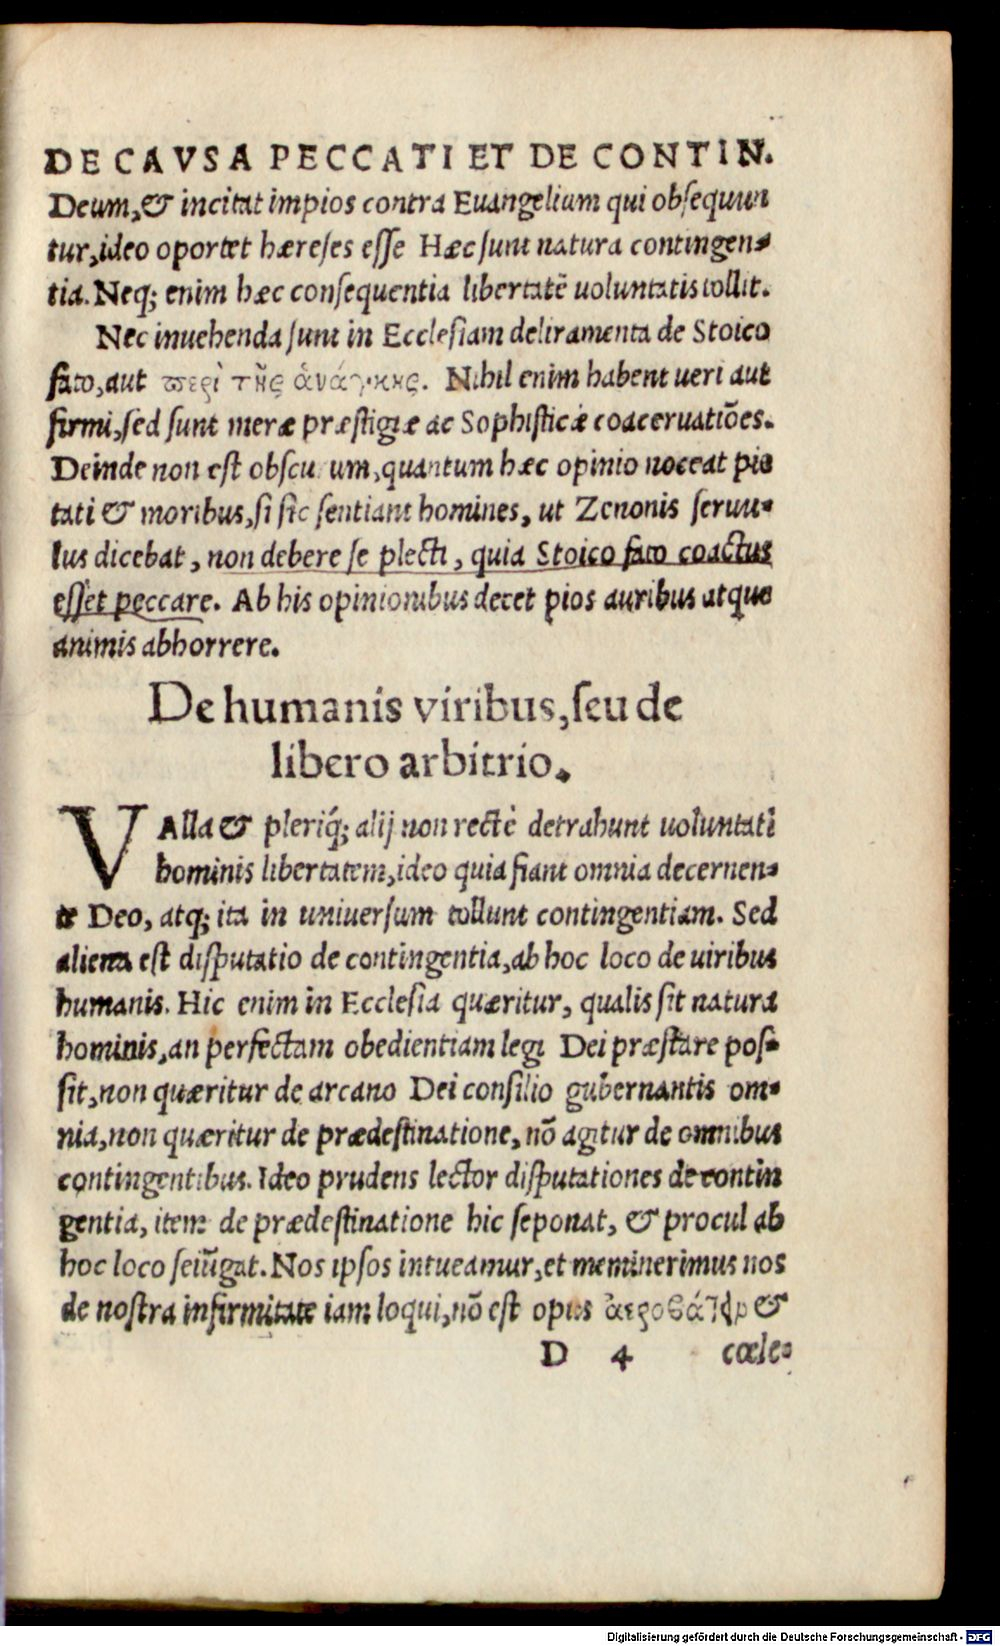 DE CAVSA PECCATI ET DE CONTIN.
Deum,& incitat impios contra Euangelium qui obsequun
tur,ideo oportet hæreses esse Hæc sunt natura contingen-
tia. Neq; enim hæc consequentia libertatē uoluntatis tollit.
Nec inuehenda sunt in Ecclesiam deliramenta de Stoico
fato,aut περὶ τῆς ἀνάγκης. Nihil enim habent ueri aut
firmi,sed sunt meræ præstigiæ ac Sophisticæ coaceruatiōes.
Deinde non est obscu um,quantum hæc opinio noceat pie
tati & moribus,si sic sentiant homines, ut Zenonis seruu-
lus dicebat, non debere se plecti, quia Stoico fato coactus
esset peccare. Ab his opinionibus decet pios auribus atque
animis abhorrere.
De humanis viribus,seu de
libero arbitrio.
VAlla & pleriq́; alij non rectè detrahunt uoluntati
hominis libertatem,ideo quia fiant omnia decernen-
te Deo, atq; ita in uniuersum tollunt contingentiam. Sed
aliena est disputatio de contingentia,ab hoc loco de uiribus
humanis. Hic enim in Ecclesia quæritur, qualis sit natura
hominis,an perfectam obedientiam legi Dei præstare pos-
sit,non quæritur de arcano Dei consilio gubernantis om-
nia,non quæritur de prædestinatione,nō agitur de omnibus
contingentibus. Ideo prudens lector disputationes de contin
gentia, item de prædestinatione hic seponat, & procul ab
hoc loco seiūgat. Nos ipsos intueamur,et meminerimus nos
de nostra infirmitate iam loqui,nō est opus ἀεροβάτειν &
D 4 cœle-
Digitalisierung gefördert durch die Deutsche Forschungsgemeinschaft - DFG